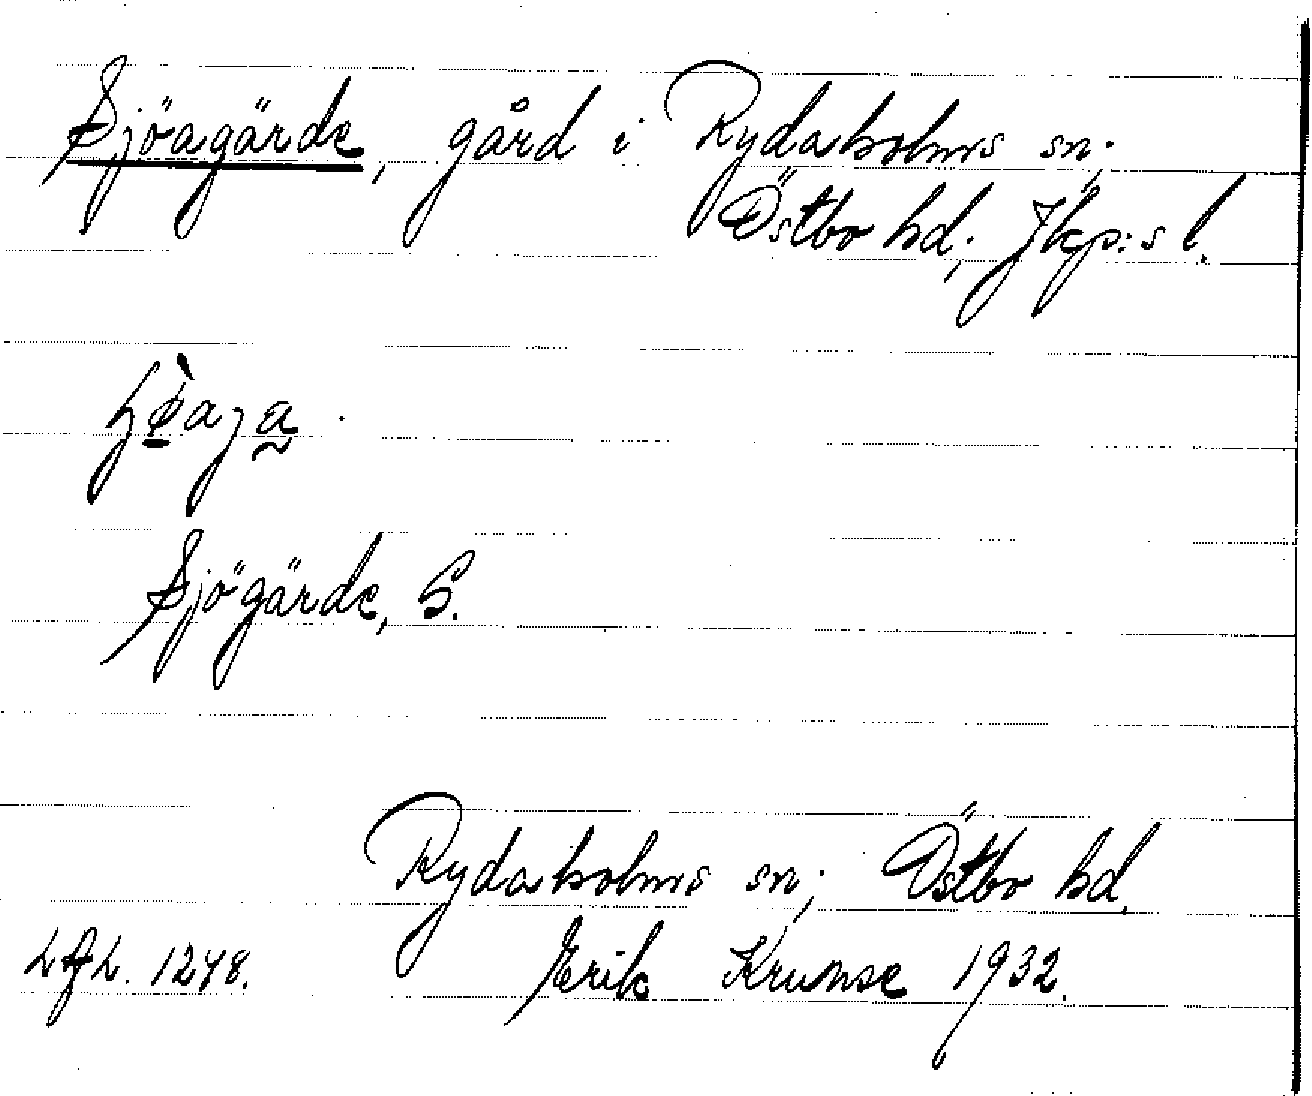 Sjöagärde, gård i Rydaholms sn;
Östbo hd; Jkp:s l.
Sjögärde, S.
Rydaholms sn; Östbo hd.
Erik Krunse 1932.